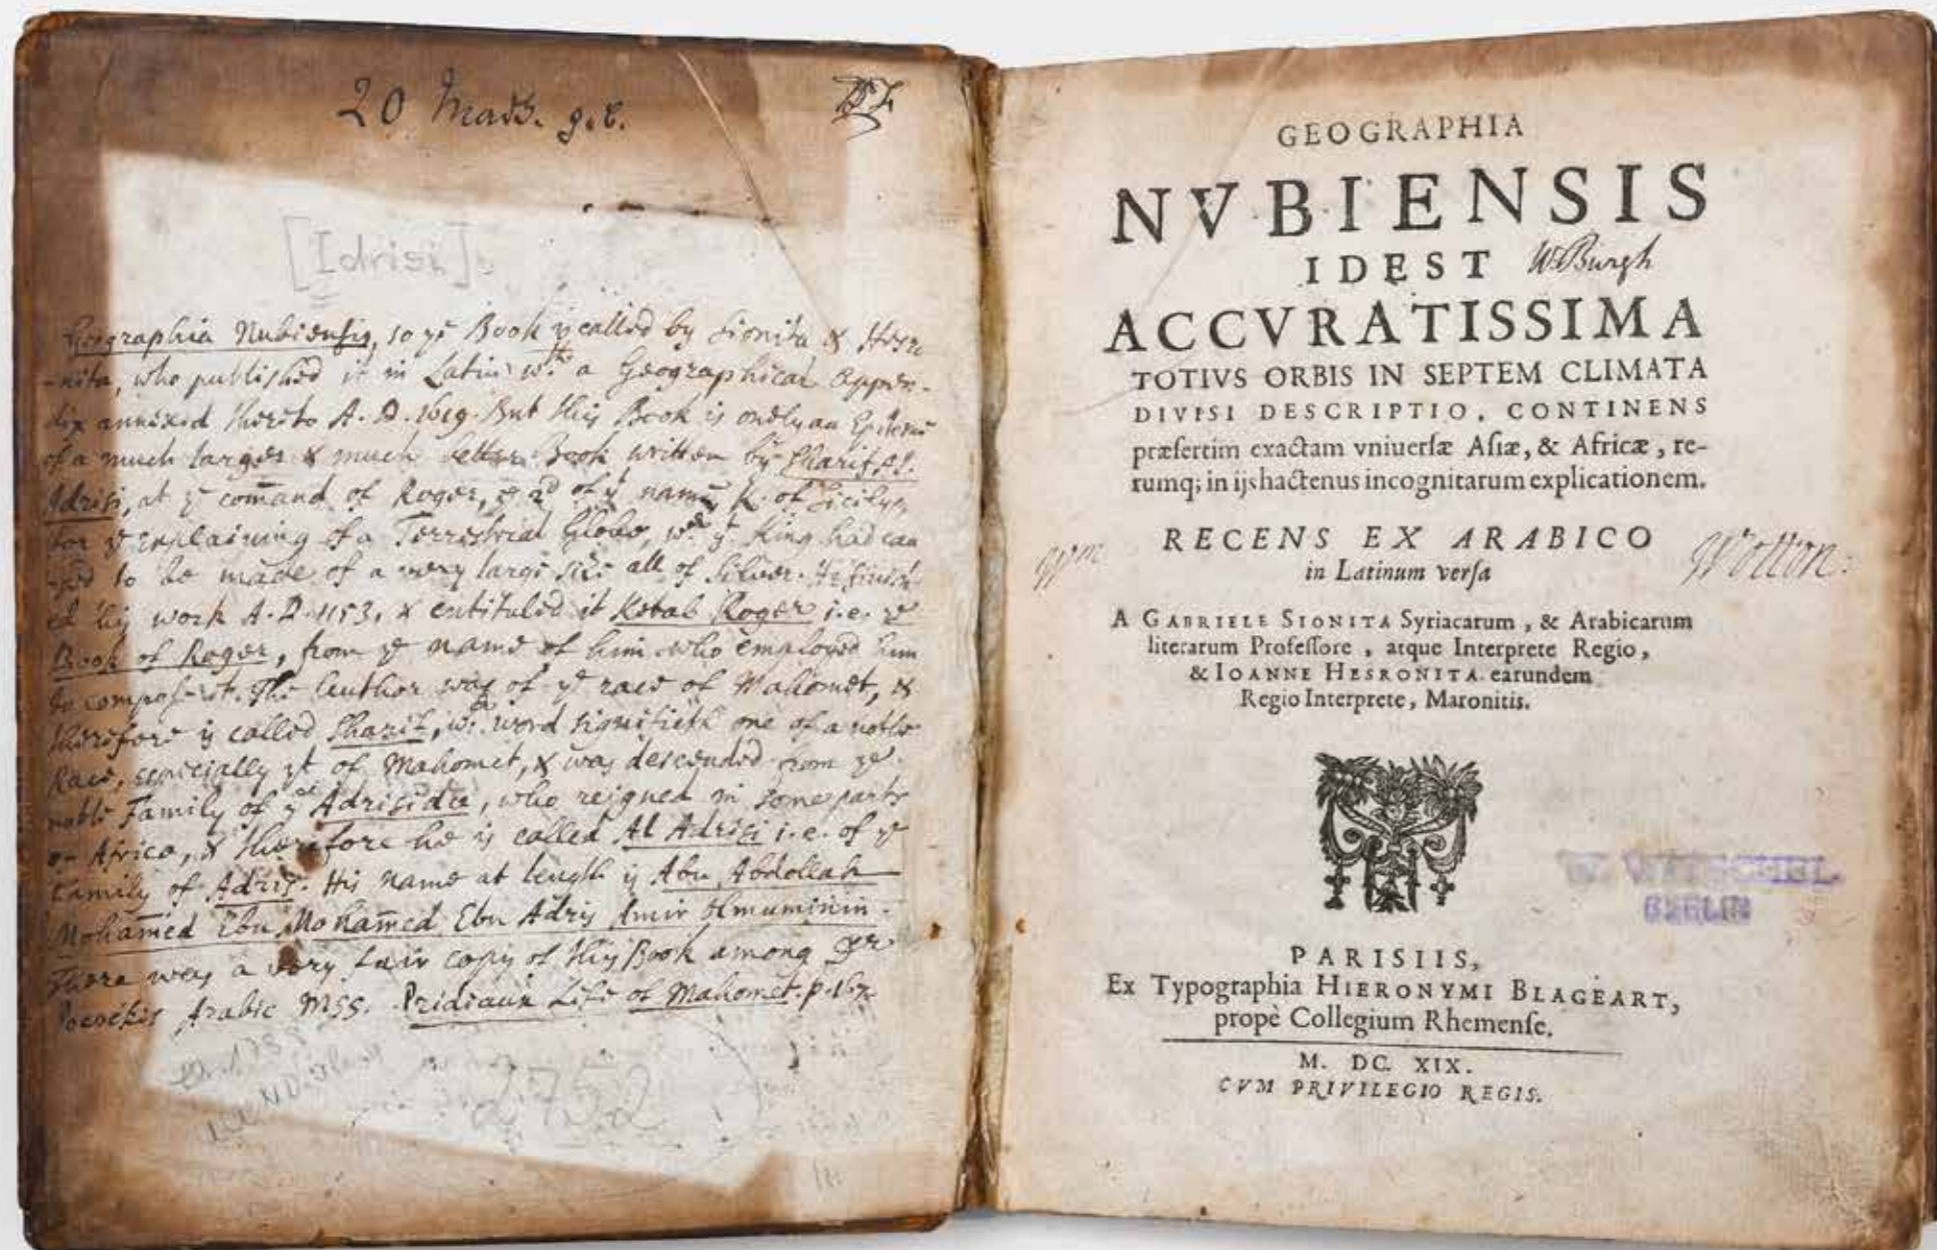 20 Mads. g.t.
[Idrisi]
Geographia Nubiensis, so ye Book is called by Sionita & Hesro
-nita, who published it in Latin wth a Geographical Appen-
dix annexed thereto A. D. 1619. But this Book is onely an Epitome
of a much larger & much better Book written by Sharif Al.
Idrisi, at ye comand of Roger, ye 2d of yt name K. of Sicily,
for ye explaining of a Terrestrial Globe, wch yt King had cau
-sed to be made of a very large size all of Silver. He finish-
ed this work A. D. 1153, & entituled it Ketab Roger i.e. ye
Book of Roger, from ye name of him who employed him
to compose it. The Author was of ye race of Mahomet, &
therefore is called Sharif, wch word signifieth one of a noble
Race, especially yt of Mahomet, & was descended from ye
noble Family of ye Adrisidæ, who reigned in some parts
of Africa, & therefore he is called Al Adrisi i.e. of ye
family of Adris. His name at length is Abu Abdollah
Mohamed Ebn Mohamed Ebn Adris Amir Olmuminin.
There was a very fair copy of this Book among Dr
Pocockis Arabic MSS. Prideaux Life of Mahomet. p.
2752
GEOGRAPHIA
NVBIENSIS
IDEST W. Burgh
ACCVRATISSIMA
TOTIVS ORBIS IN SEPTEM CLIMATA
DIVISI DESCRIPTIO, CONTINENS
præsertim exactam vniuersæ Asiæ, & Africæ, re-
rumq; in ijs hactenus incognitarum explicationem.
RECENS EX ARABICO
Wm Wotton:
in Latinum versa
A GABRIELE SIONITA Syriacarum, & Arabicarum
literarum Professore, atque Interprete Regio,
& IOANNE HESRONITA earundem
Regio Interprete, Maronitis.
W. WITSCHEL
BERLIN
PARISIIS,
Ex Typographia HIERONYMI BLAGEART,
propè Collegium Rhemense.
M. DC. XIX.
CVM PRIVILEGIO REGIS.